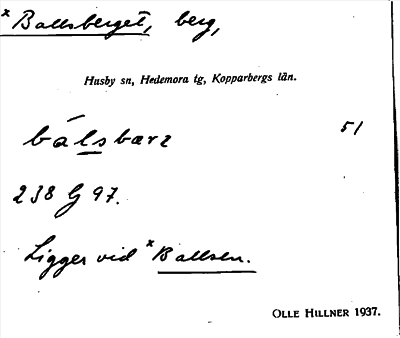 x Ballsberget, berg,
Husby sn, Hedemora tg, Kopparbergs län.
bálsbærz 51
238 G 97.
Ligger vid x Ballsen.
OLLE HILLNER 1937.